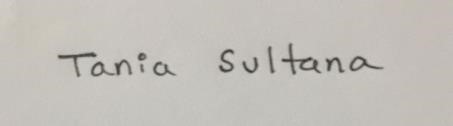 Tania Sultana